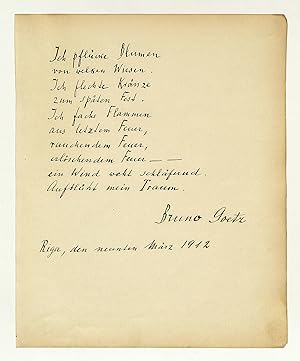 Ich pflücke Blumen
von welken Wiesen.
Ich flechte Kränze
zum späten Fest.
Ich fache Flammen
aus letztem Feuer,
rauchendem Feuer,
erlöschendem Feuer — —
ein Wind weht schläfernd.
Aufblüht mein Traum.
Bruno Goetz
Riga, den neunten März 1912